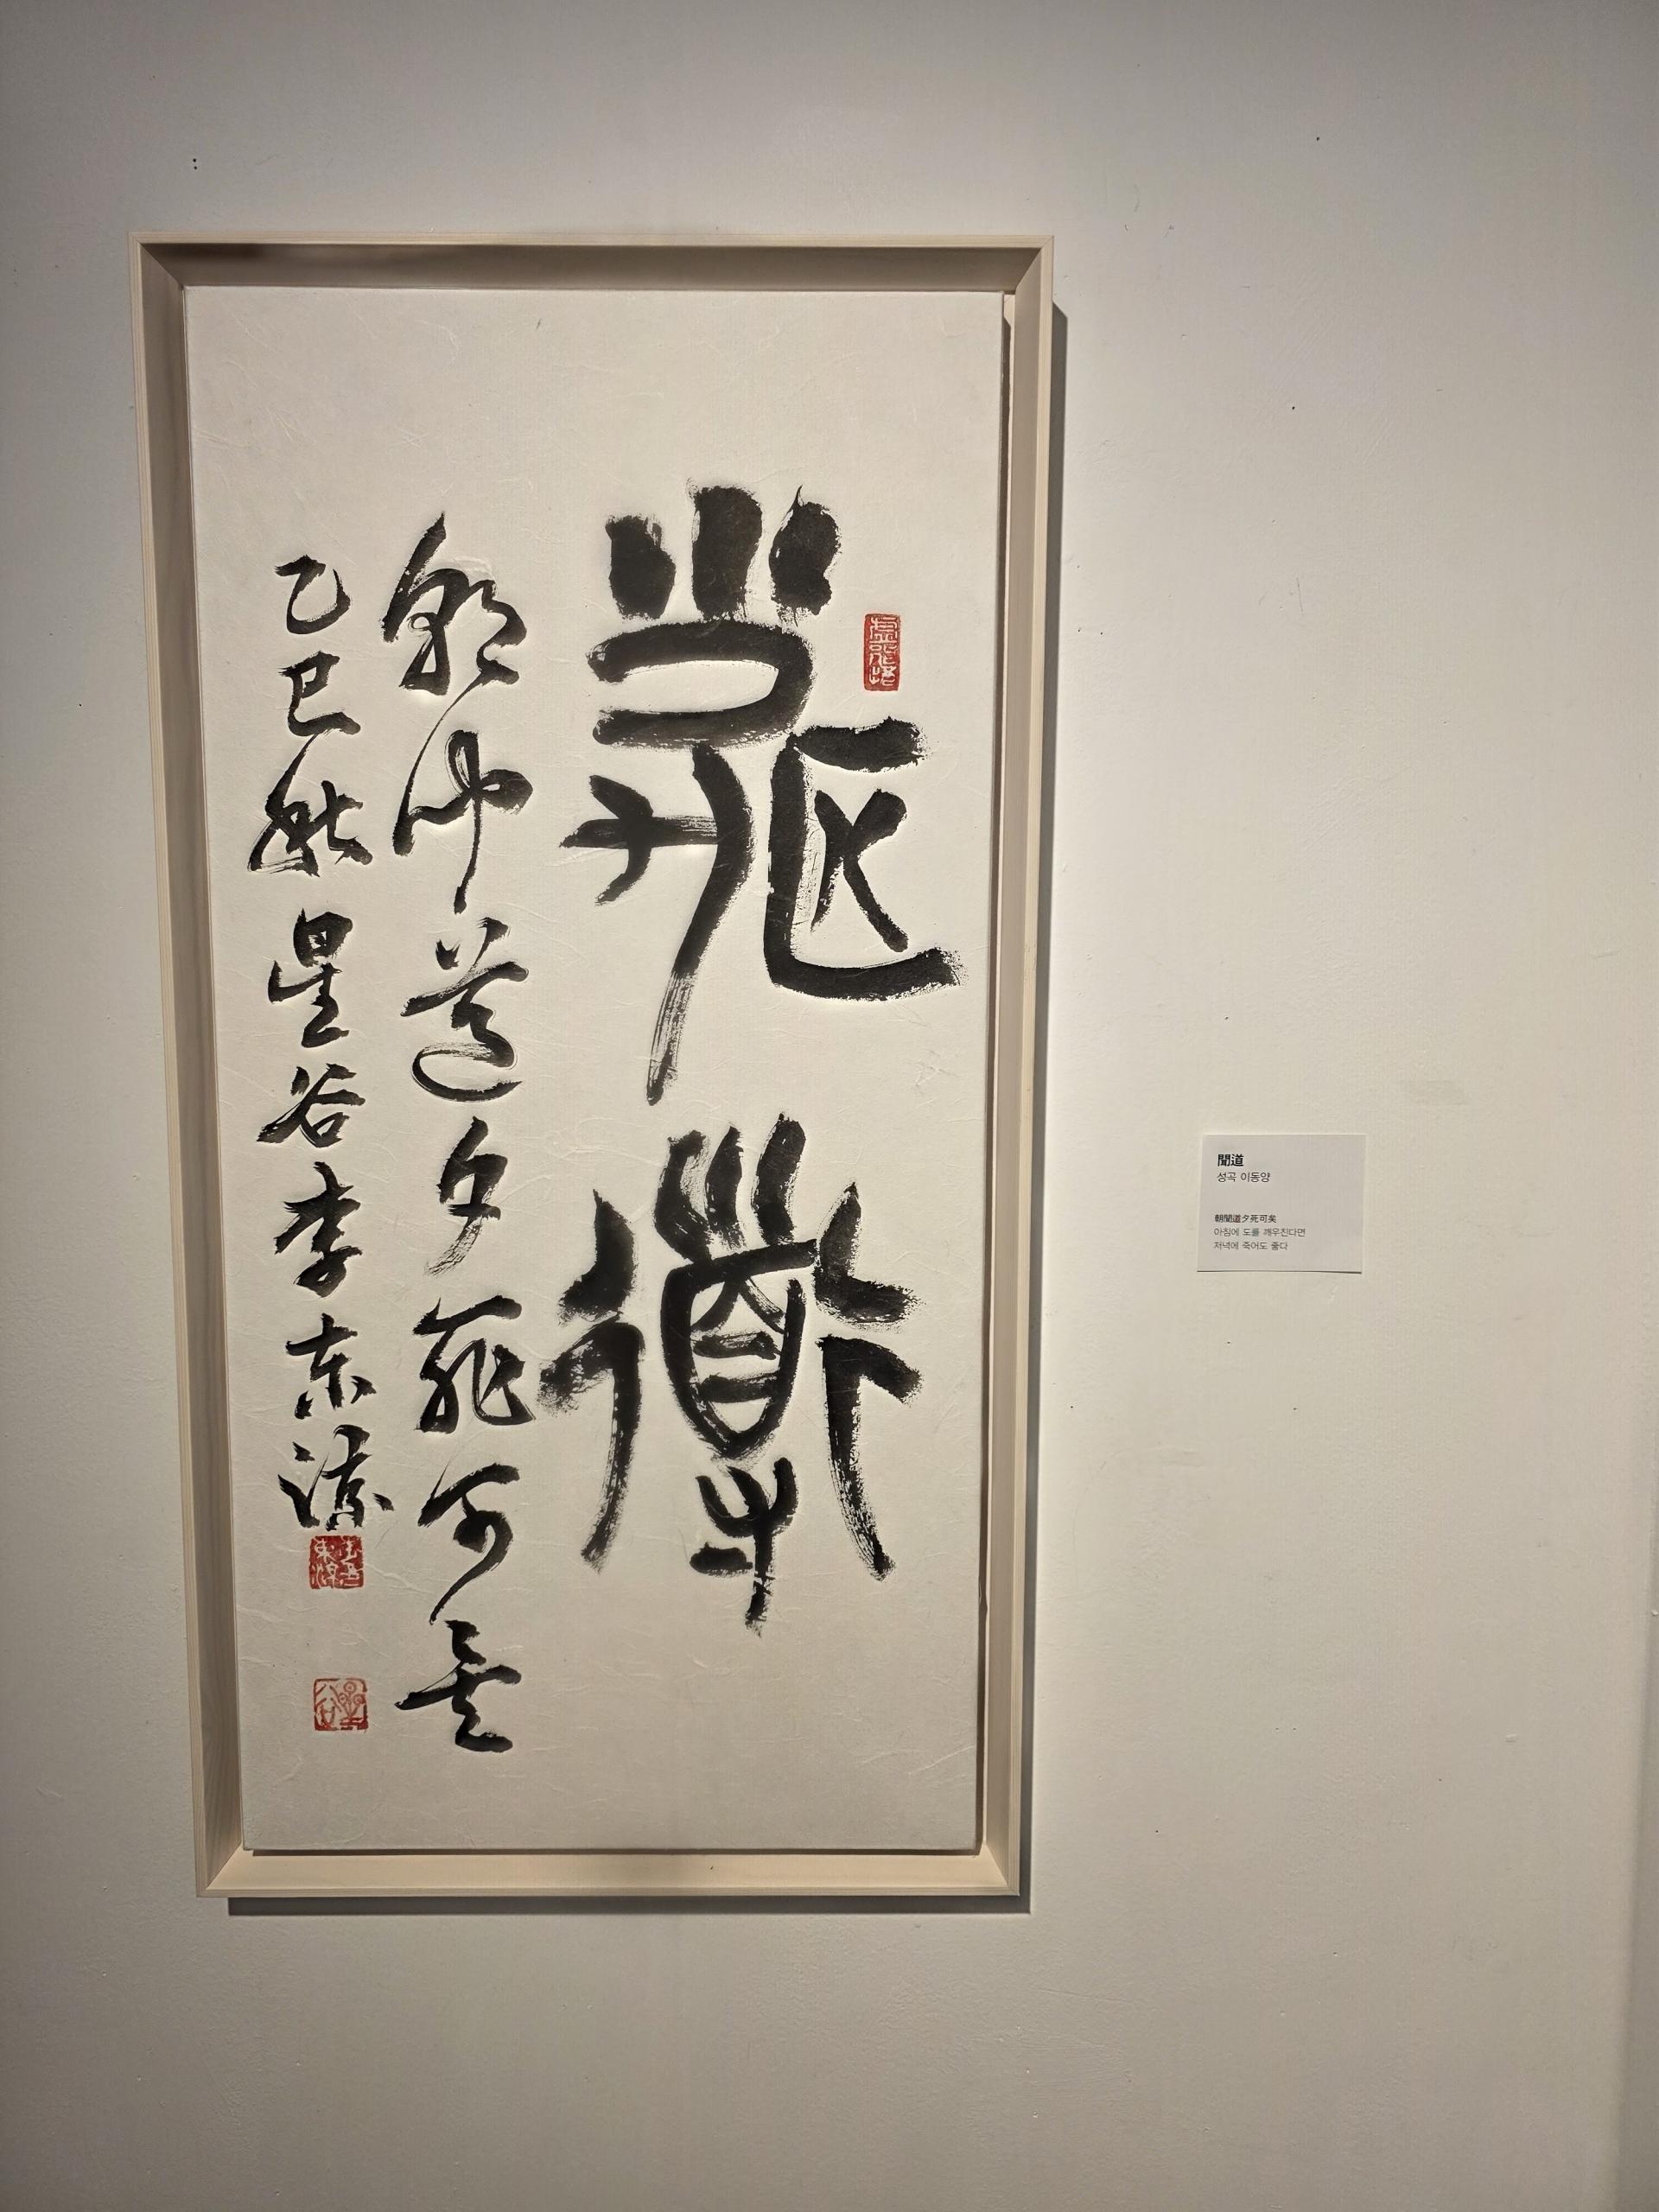 聞道
朝聞道夕死可矣
乙巳秋星谷李東瀁
聞道
성곡 이동양
朝聞道夕死可矣
아침에 도를 깨우친다면
저녁에 죽어도 좋다